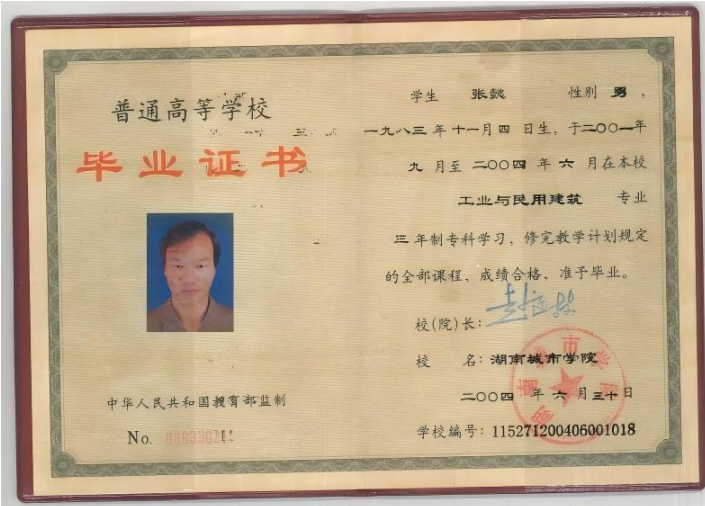 普通高等学校
毕业证书
中华人民共和国教育部监制
No.
学生 张懿 性别 男,
一九八三年十一月四日生,于二〇〇一年
九月至二〇〇四年六月在本校
工业与民用建筑 专业
三年制专科学习,修完教学计划规定
的全部课程,成绩合格,准予毕业。
校(院)长:
校 名:湖南城市学院
二〇〇四年六月三十日
学校编号:115271200406001018